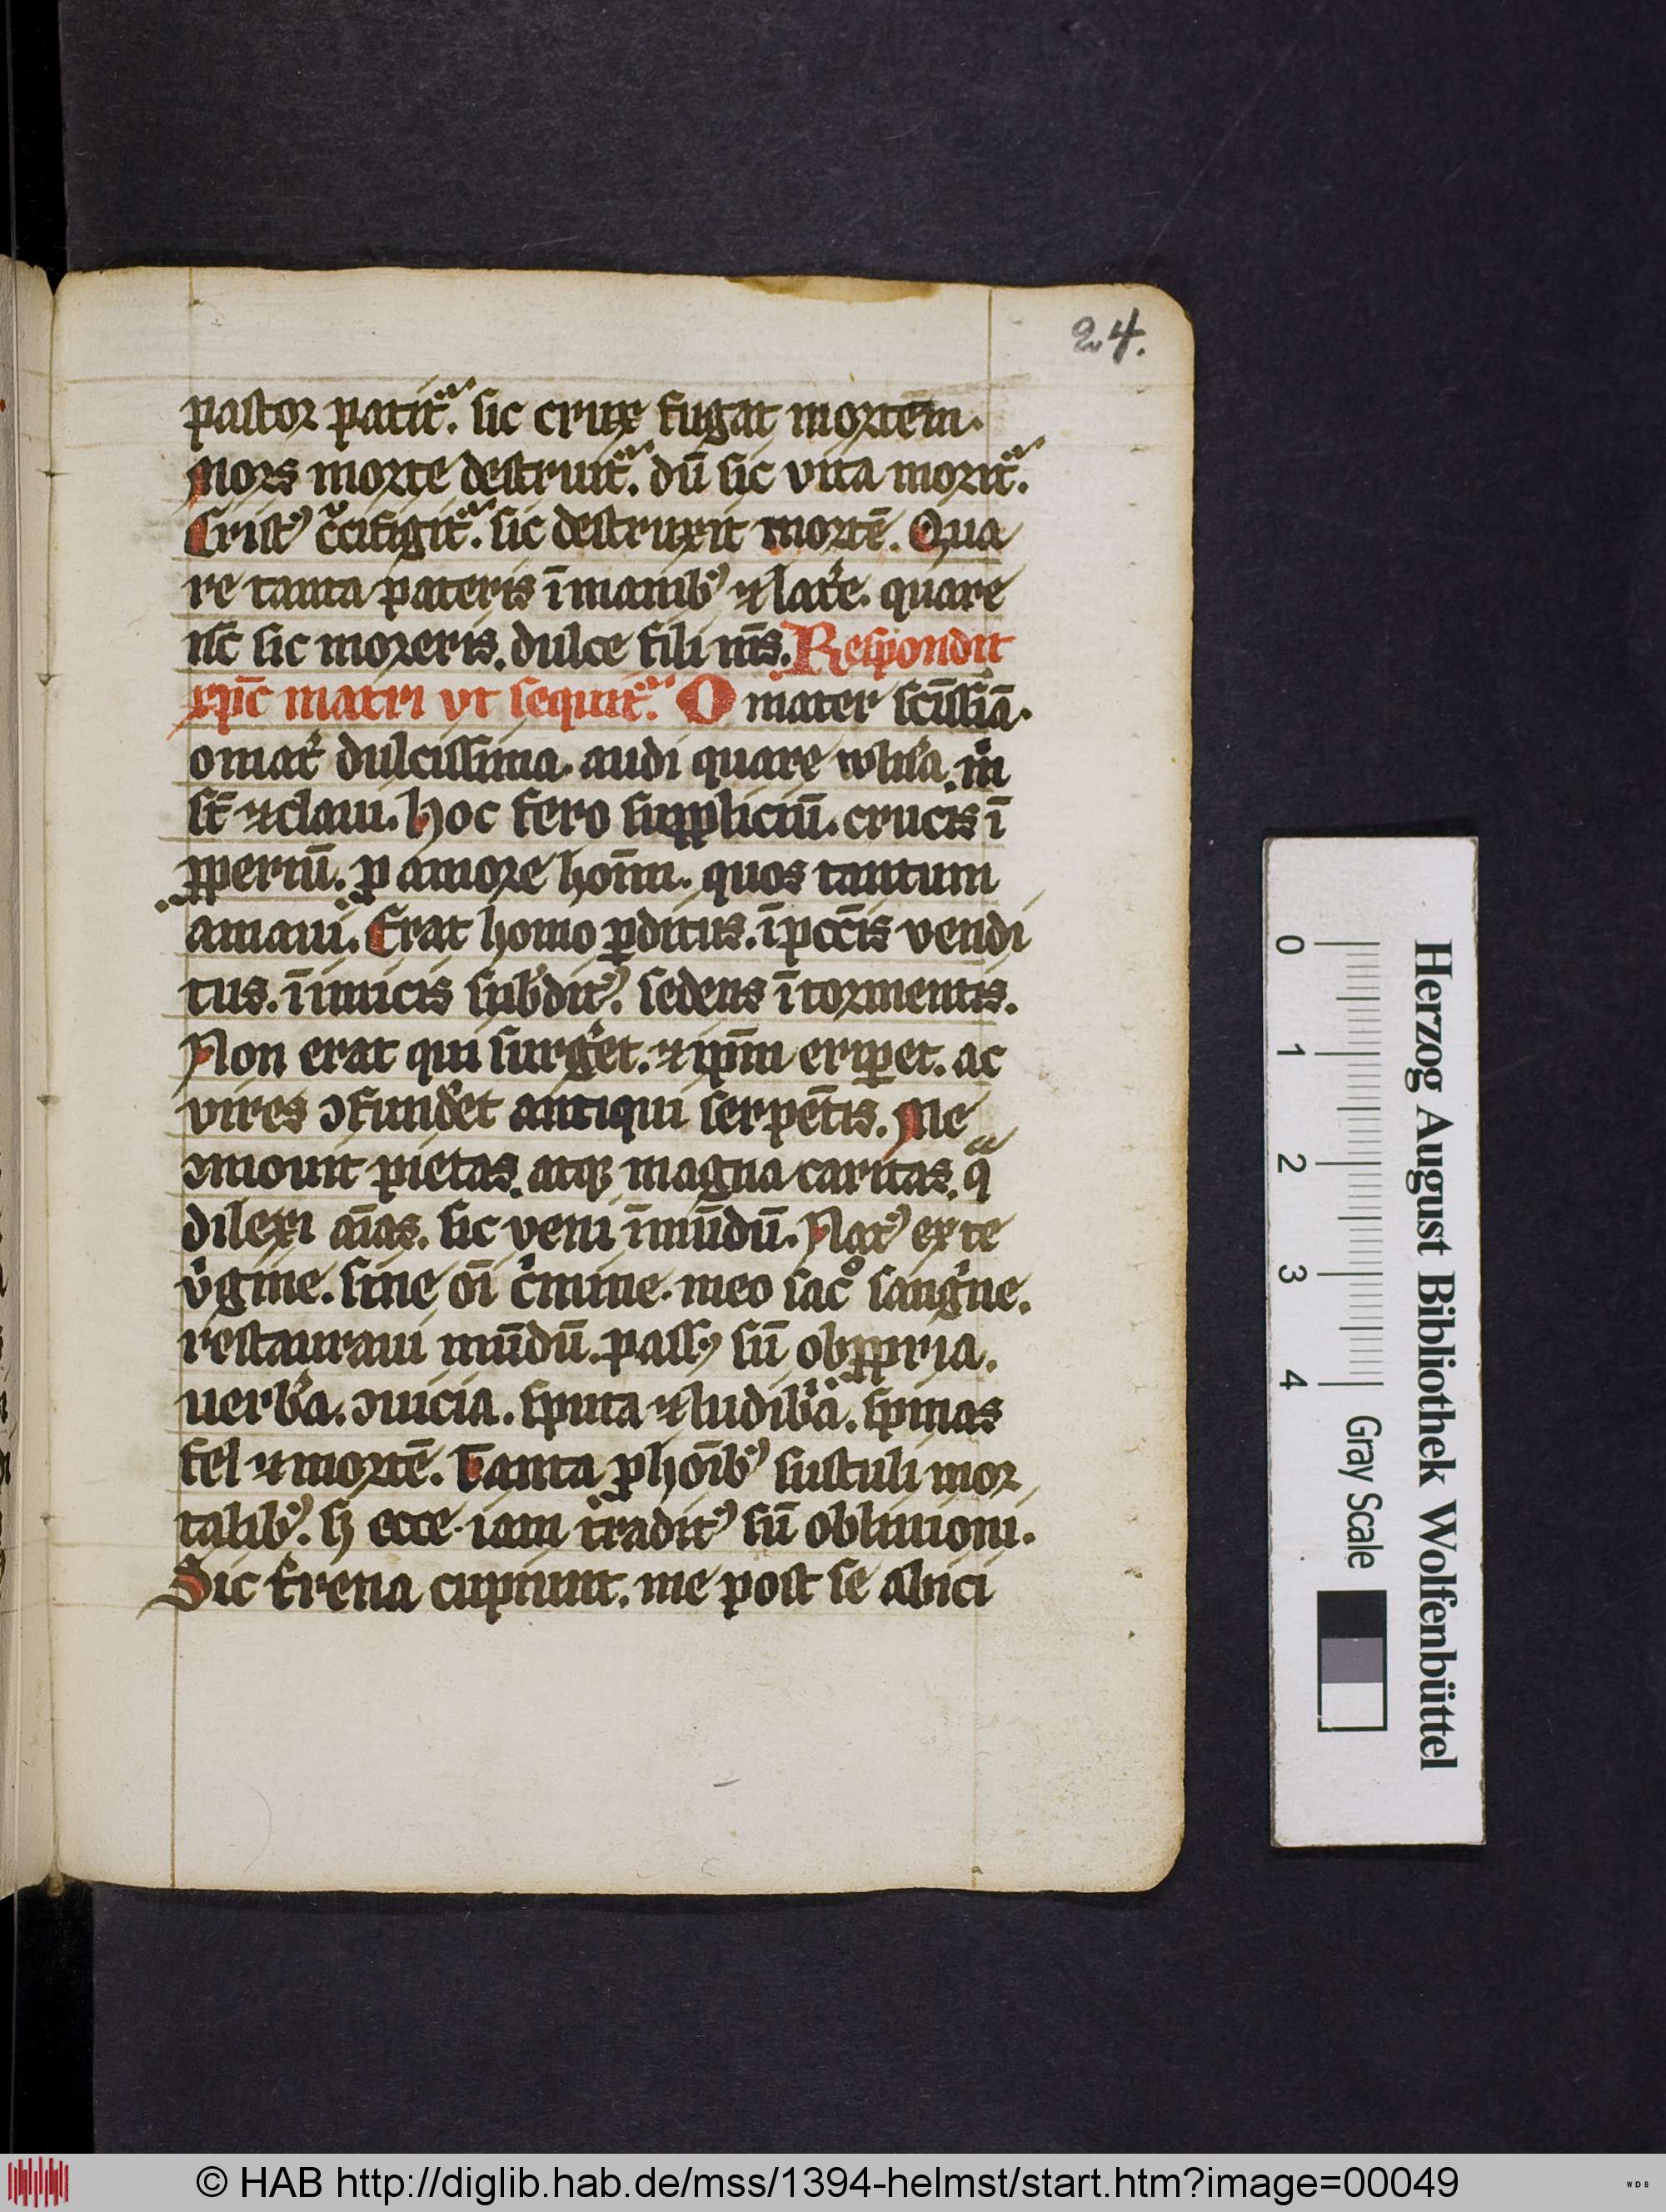 24.
pastor patit᷑ᷓ. sic crux fugat mortem.
Mors morte destruit᷑ᷓ. dū sic vita morit᷑ᷓ.
Cristꝰ cͮcifigit᷑ᷓ. sic destruxit mortē. Qua
re tanta pateris ī manibꝰ ⁊ lat̾e. quare
nc̄ sic moreris. dulce fili mī. Respondit
xp̄c matri vt sequit᷑ᷓ. O mater
o mat̾ dulcissima. audi quare
st̄ ⁊ claui. Hoc fero suppliciū. crucis ī
ꝓperiū. ꝓ amore hoīm. quos tantum
amaui. Erat homo ꝑditus. ī pcc̄is vendi
tus. īimicis sub̾ditꝰ. sedens ī tormentis.
Non erat qui surg̾et. ⁊ ip̄m eriꝑet. ac
vires ꝯfund̾et antiqui serpētis. Me
ꝯmouit pietas. atqꝫ magna caritas. qᷓ
dilexi aīas. sic veni ī mūdū. Natꝰ ex te
v̾gine. sine oī cͥmine. meo sacͦ sangͥne.
restauraui mūdū. passꝰ sū obꝓpria.
uerb̾a. ꝯuicia. sputa ⁊ ludib̾a. spinas
fel ⁊ mortē. Tanta ꝓ hoībꝰ sustuli mor
talibꝰ. sꝫ ecce iam traditꝰ sū obliuioni.
Sic t̾rena cupiunt. me post se abici
Herzog August Bibliothek Wolfenbüttel
0 1 2 3 4 Gray Scale
© HAB http://diglib.hab.de/mss/1394-helmst/start.htm?image=00049
WDB